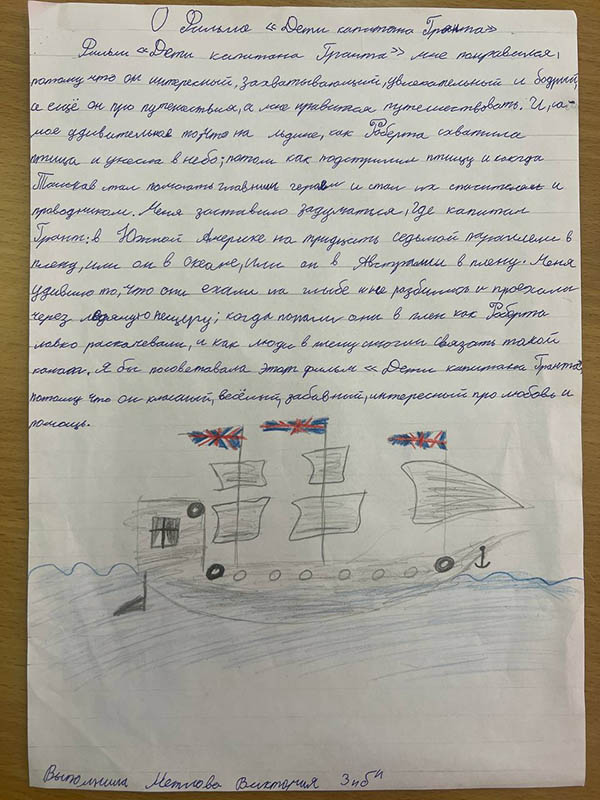 О Фильме «Дети капитана Гранта»
Фильм «Дети капитана Гранта» мне понравился,
потому что он интересный, захватывающий, увлекательный и бодрий,
а ещё он про путешествия, а мне нравится путешествовать. И, са-
мое удивительное то, что на льдине, как Роберта схватила
птица и унесла в небо; потом как подстрилили птицу и когда
Талькав стал помогать главным героям и стал их спасителем и
проводником. Меня заставило задуматься, где капитан
Грант: в Южной Америке на тридцать седьмой параллели в
плену, или он в Океане, или он в Австралии в плену. Меня
удивило то, что они ехали на глыбе и не разбились и проехали
через ледяную пещеру; когда попали они в плен как Роберта
ловко раскачевали, и как люди в плену смогли связать такой
канат. Я бы посоветовала этот фильм «Дети капитана Гранта»,
потому что он класный, весёлый, забавный, интересный про любовь и
помощь.
Выполнила Метлова Виктория 3 "б"